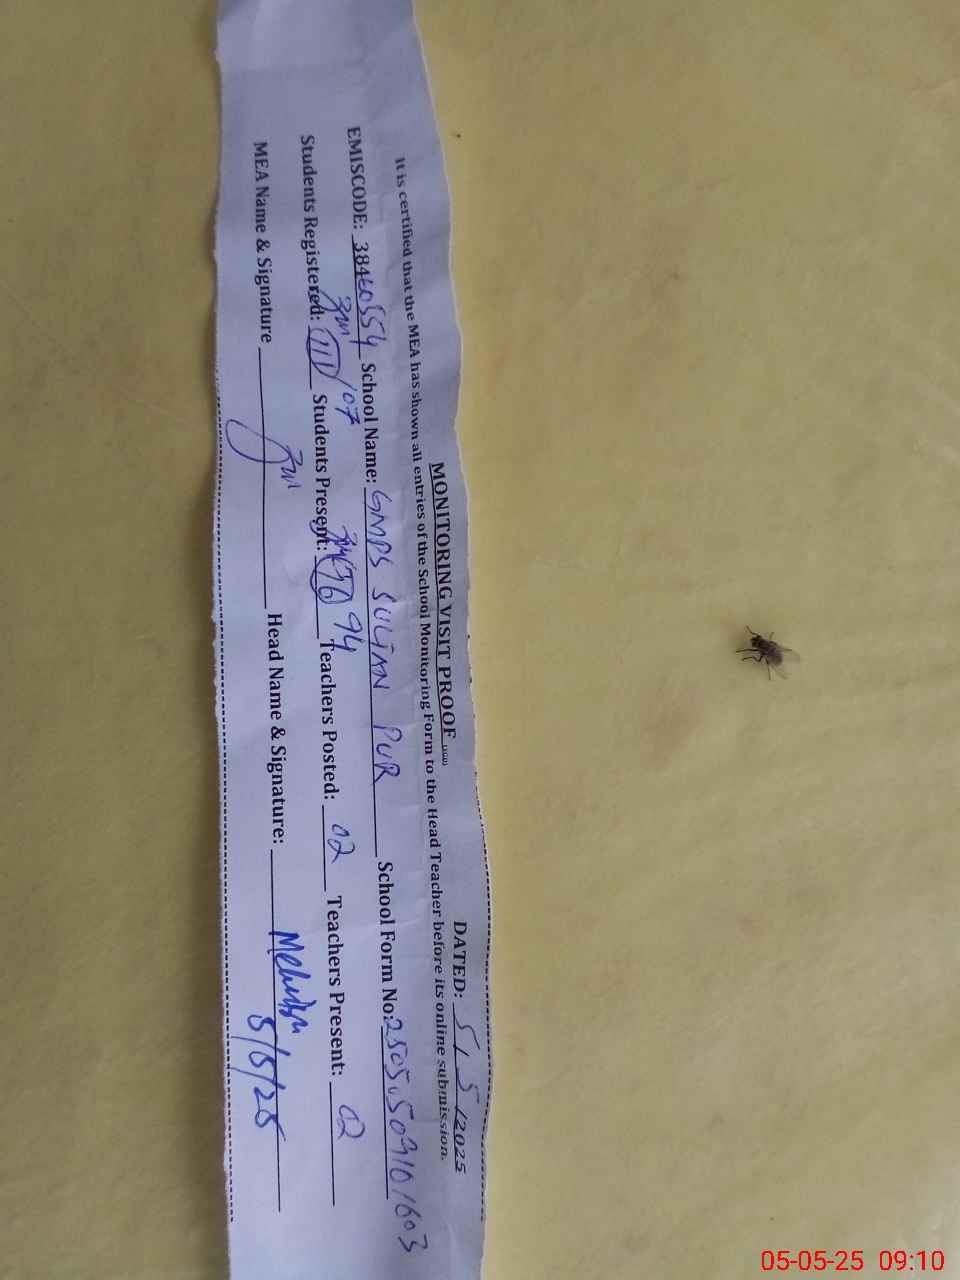 MONITORING VISIT PROOF DATED: 5/5/2025
It is certified that the MEA has shown all entries of the School Monitoring Form to the Head Teacher before its online submission.
EMISCODE: 38460554 School Name: GMPS SULTAN PUR School Form No: 25050509101603
Students Registered: 111 107 Students Present: 96 94 Teachers Posted: 02 Teachers Present: 02
MEA Name & Signature Head Name & Signature:
5/5/25
05-05-25 09:10